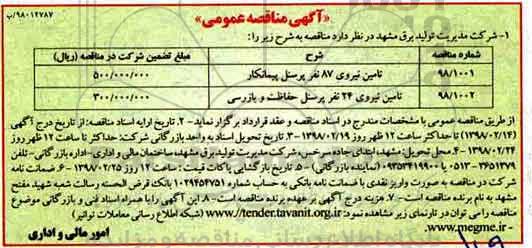 ۹۸۰۱۲۷۸۷/پ
«آگهی مناقصه عمومی»
۱- شرکت مدیریت تولید برق مشهد در نظر دارد مناقصه به شرح زیر را:
شماره مناقصه شرح مبلغ تضمین شرکت در مناقصه (ریال)
۹۸/۱۰۰۱ تامین نیروی ۸۷ نفر پرسنل پیمانکار ۵۰۰/۰۰۰/۰۰۰
۹۸/۱۰۰۲ تامین نیروی ۲۴ نفر پرسنل حفاظت و بازرسی ۳۰۰/۰۰۰/۰۰۰
از طریق مناقصه عمومی با مشخصات مندرج در اسناد مناقصه و عقد قرارداد برگزار نماید- ۲. تاریخ ارایه اسناد مناقصه: از تاریخ درج آگهی
(۱۳۹۸/۰۲/۱۴) تا حداکثر ساعت ۱۲ ظهر روز ۱۳۹۸/۰۲/۱۹-۳. تاریخ تحویل اسناد به واحد بازرگانی شرکت: حداکثر تا ساعت ۱۲ ظهر روز
۱۳۹۸/۰۲/۲۴-۴. محل تحویل: مشهد، ابتدای جاده سرخس، شرکت مدیریت تولید برق مشهد، ساختمان مالی و اداری- اداره بازرگانی- تلفن
۳۶۵۱۳۷۹-۰۵۱۳ و ۰۹۳۵۳۴۱۹۹۰۰ (نماینده بازرگانی) -۵. تاریخ بازگشایی پاکات قیمت: ساعت ۱۲ روز ۱۳۹۸/۰۲/۲۵-۶. ضمانت نامه
شرکت در مناقصه به صورت واریز نقدی یا ضمانت نامه بانکی به حساب شماره ۱۰۲۹۴۵۴۷۵۱ بانک قرض الحسنه رسالت شعبه شهید مفتح
مشهد به نام برنده مناقصه است-۷. هزینه درج آگهی بر عهده برنده مناقصه است-۸. این آگهی را با همراه اسناد فنی و بازرگانی موضوع
مناقصه را می توان در تارنمای زیر مشاهده نمود: http://www.tender.tavanit.org.ir (شبکه اطلاع رسانی معاملات توانیر)
و www.megme.ir-
امور مالی و اداری